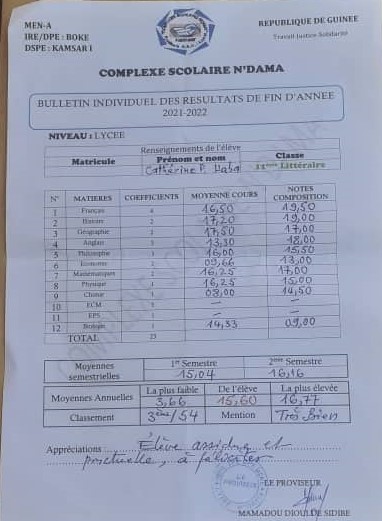 MEN-A
IRE/DPE : BOKE
DSPE : KAMSAR I
REPUBLIQUE DE GUINEE
Travail Justice Solidarité
COMPLEXE SCOLAIRE N'DAMA
BULLETIN INDIVIDUEL DES RESULTATS DE FIN D'ANNEE
2021-2022
NIVEAU : LYCEE
Renseignements de l'élève
Matricule Prénom et nom Classe
Cathérine P. Haba 11ème Littéraire
N° MATIERES COEFFICIENTS MOYENNE COURS NOTES COMPOSITION
1 Français 4 16,50 19,50
2 Histoire 2 17,20 19,00
3 Géographie 2 17,50 17,00
4 Anglais 13,30 18,00
5 Philosophie 16,00 15,50
6 Economie 09,66 13,00
7 Mathématiques 2 16,25 17,00
8 Physique 1 16,25 15,00
9 Chimie 1 08,00 14,50
10 ECM — —
11 EPS — —
12 Biologie 1 14,33 09,00
TOTAL 23
Moyennes semestrielles 1er Semestre 2ème Semestre
15,04 16,16
Moyennes Annuelles La plus faible De l'élève La plus élevée
3,66 15,60 16,77
Classement 3ème/54 Mention Très Bien
Appréciations : Elève assidue et
ponctuelle, à féliciter
LE PROVISEUR
MAMADOU DIOULDE SIDIBE